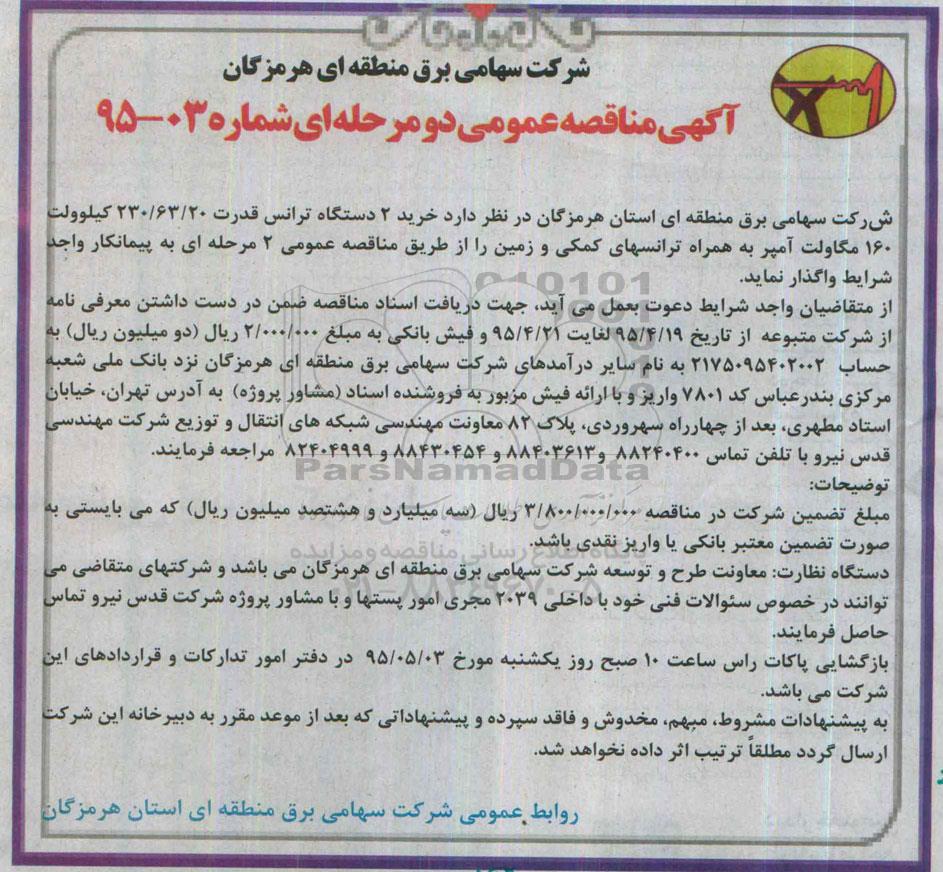 شرکت سهامی برق منطقه ای هرمزگان
آگهی مناقصه عمومی دو مرحله ای شماره ۰۳-۹۵
شرکت سهامی برق منطقه ای استان هرمزگان در نظر دارد خرید ۲ دستگاه ترانس قدرت ۲۳۰/۶۳/۲۰ کیلوولت
۱۶۰ مگاولت آمپر به همراه ترانسهای کمکی و زمین را از طریق مناقصه عمومی ۲ مرحله ای به پیمانکار واجد
شرایط واگذار نماید.
از متقاضیان واجد شرایط دعوت بعمل می آید، جهت دریافت اسناد مناقصه ضمن در دست داشتن معرفی نامه
از شرکت متبوعه از تاریخ ۹۵/۴/۱۹ لغایت ۹۵/۴/۲۱ و فیش بانکی به مبلغ ۲/۰۰۰/۰۰۰ ریال (دو میلیون ریال) به
حساب ۲۱۷۵۰۹۵۴۰۲۰۰۲ به نام سایر درآمدهای شرکت سهامی برق منطقه ای هرمزگان نزد بانک ملی شعبه
مرکزی بندرعباس کد ۷۸۰۱ واریز و با ارائه فیش مزبور به فروشنده اسناد (مشاور پروژه) به آدرس تهران، خیابان
استاد مطهری، بعد از چهارراه سهروردی، پلاک ۸۲ معاونت مهندسی شبکه های انتقال و توزیع شرکت مهندسی
قدس نیرو با تلفن تماس ۸۸۲۴۰۴۰۰ و۸۸۴۰۳۶۱۳ و ۸۸۴۳۰۴۵۴ و ۸۲۴۰۴۹۹۹ مراجعه فرمایند.
توضیحات:
مبلغ تضمین شرکت در مناقصه ۳/۸۰۰/۰۰۰/۰۰۰ ریال (سه میلیارد و هشتصد میلیون ریال) که می بایستی به
صورت تضمین معتبر بانکی یا واریز نقدی باشد.
دستگاه نظارت: معاونت طرح و توسعه شرکت سهامی برق منطقه ای هرمزگان می باشد و شرکتهای متقاضی می
توانند در خصوص سئوالات فنی خود با داخلی ۲۰۳۹ مجری امور پستها و با مشاور پروژه شرکت قدس نیرو تماس
حاصل فرمایند.
بازگشایی پاکات راس ساعت ۱۰ صبح روز یکشنبه مورخ ۹۵/۰۵/۰۳ در دفتر امور تدارکات و قراردادهای این
شرکت می باشد.
به پیشنهادات مشروط، مبهم، مخدوش و فاقد سپرده و پیشنهاداتی که بعد از موعد مقرر به دبیرخانه این شرکت
ارسال گردد مطلقاً ترتیب اثر داده نخواهد شد.
روابط عمومی شرکت سهامی برق منطقه ای استان هرمزگان
ParsNamadData
پایگاه اطلاع رسانی مناقصه و مزایده